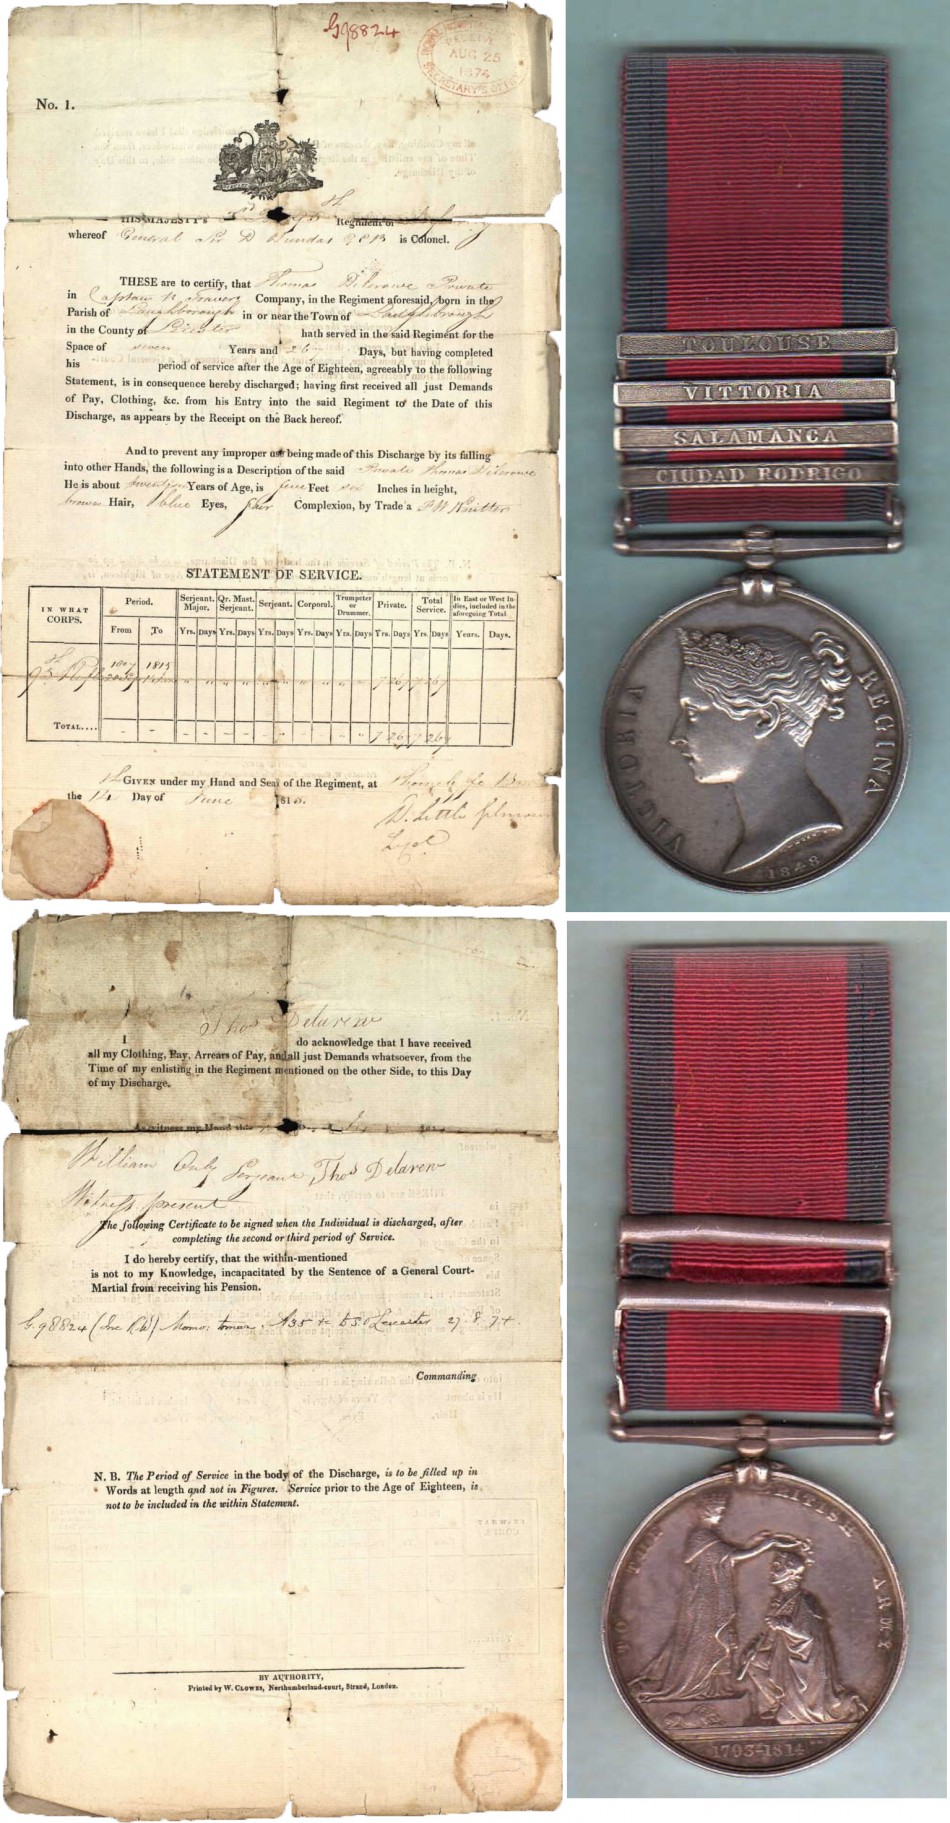 G98824
AUG 25
1874
SECRETARY'S OFFICE
No. 1.
HIS MAJESTY's Regiment of
whereof General Sir D Dundas GCB is Colonel.
THESE are to certify, that Thomas Private
in Captain Travers Company, in the Regiment aforesaid, born in the
Parish of Loughborough in or near the Town of Loughborough
in the County of Leicester hath served in the said Regiment for the
Space of seven Years and Days, but having completed
his period of service after the Age of Eighteen, agreeably to the following
Statement, is in consequence hereby discharged; having first received all just Demands
of Pay, Clothing, &c. from his Entry into the said Regiment to the Date of this
Discharge, as appears by the Receipt on the Back hereof.
And to prevent any improper use being made of this Discharge by its falling
into other Hands, the following is a Description of the said Private Thomas
He is about Years of Age, is five Feet six Inches in height,
brown Hair, blue Eyes, fair Complexion, by Trade a F W Knitter
STATEMENT OF SERVICE.
IN WHAT CORPS.
Period.
Serjeant Major.
Qr. Mast. Serjeant.
Serjeant.
Corporal.
Trumpeter or Drummer.
Private.
Total Service.
In East or West Indies, included in the aforegoing Total
From To Yrs. Days Yrs. Days Yrs. Days Yrs. Days Yrs. Days Yrs. Days Yrs. Days Years. Days.
1807 1815
95th
TOTAL....
GIVEN under my Hand and Seal of the Regiment, at
the 14 Day of June 181
No. 1.
Thos Delarew
I do acknowledge that I have received
all my Clothing, Pay, Arrears of Pay, and all just Demands whatsoever, from the
Time of my enlisting in the Regiment mentioned on the other Side, to this Day
of my Discharge.
As witness my Hand this
William Serjeant Thos Delarew
Witness present
The following Certificate to be signed when the Individual is discharged, after
completing the second or third period of Service.
I do hereby certify, that the within-mentioned
is not to my Knowledge, incapacitated by the Sentence of a General Court-
Martial from receiving his Pension.
G.98824 Leicester 27.8.74.
Commanding
N. B. The Period of Service in the body of the Discharge, is to be filled up in
Words at length and not in Figures. Service prior to the Age of Eighteen, is
not to be included in the within Statement.
BY AUTHORITY,
Printed by W. CLOWES, Northumberland-court, Strand, London.
TOULOUSE
VITTORIA
SALAMANCA
CIUDAD RODRIGO
VICTORIA REGINA
1848
TO THE BRITISH ARMY
1793-1814